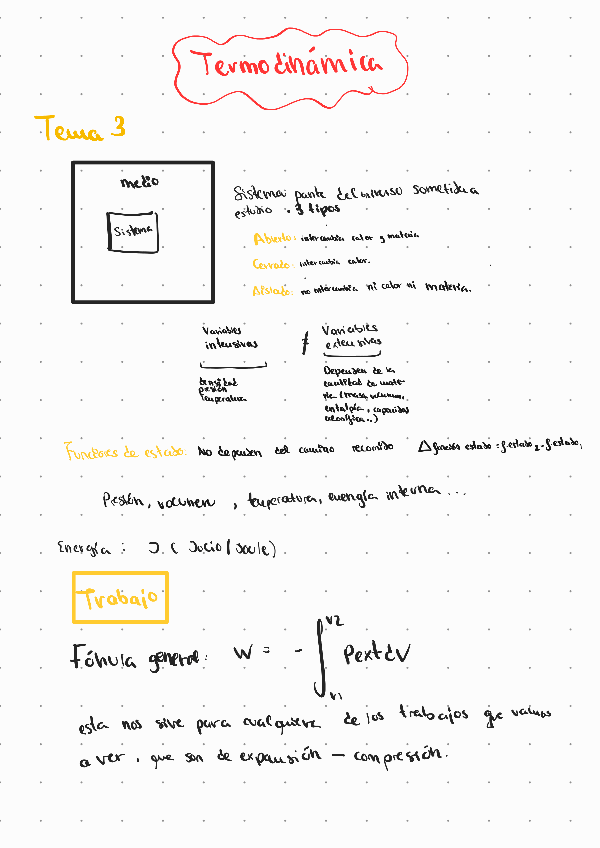 Termodinámica
Tema 3
medio
Sistema
Sistema: parte del universo sometida a
estudio . 3 tipos
Abierto: intercambia calor y materia
Cerrado: intercambia calor.
Aislado: no intercambia ni calor ni materia.
Variables
intensivas
densidad
presión
Temperatura
≠
Variables
extensivas
Dependen de la
cantidad de mate-
ria (masa, volumen,
entalpía, capacidad
calorífica..)
Funciones de estado: No dependen del camino recorrido Δ función estado = f.estado₂ - f.estado₁
Presión, volumen , temperatura, energía interna ...
Energía : J. ( Julio / Joule)
Trabajo
Fórmula general: W = - ∫ Pext dV
V2
V1
esta nos sirve para cualquiera de los trabajos que vamos
a ver , que son de expansión – compresión.